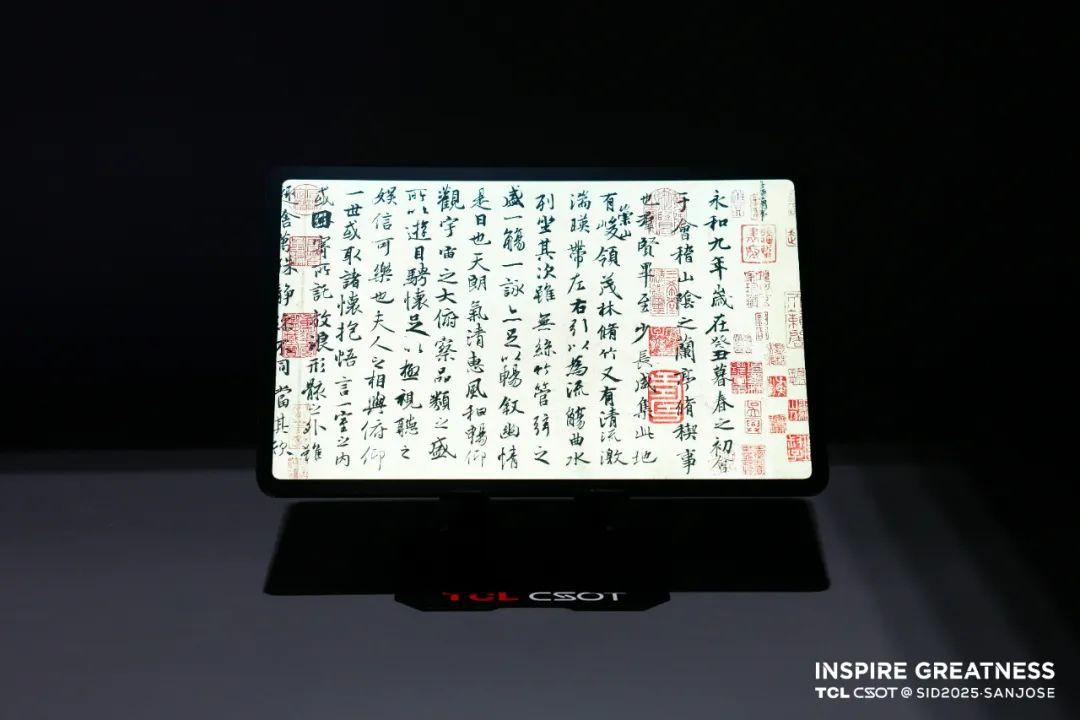 永和九年歲在癸丑暮春之初會
于會稽山陰之蘭亭脩稧事
也羣賢畢至少長咸集此地
有崇山峻領茂林脩竹又有清流激
湍暎帶左右引以為流觴曲水
列坐其次雖無絲竹管弦之
盛一觴一詠亦足以暢敘幽情
是日也天朗氣清惠風和暢仰
觀宇宙之大俯察品類之盛
所以遊目騁懷足以極視聽之
娛信可樂也夫人之相與俯仰
一世或取諸懷抱悟言一室之內
或因寄所託放浪形骸之外雖
趣舍萬殊靜躁不同當其欣
TCL CSOT
INSPIRE GREATNESS
TCL CSOT @ SID2025·SANJOSE